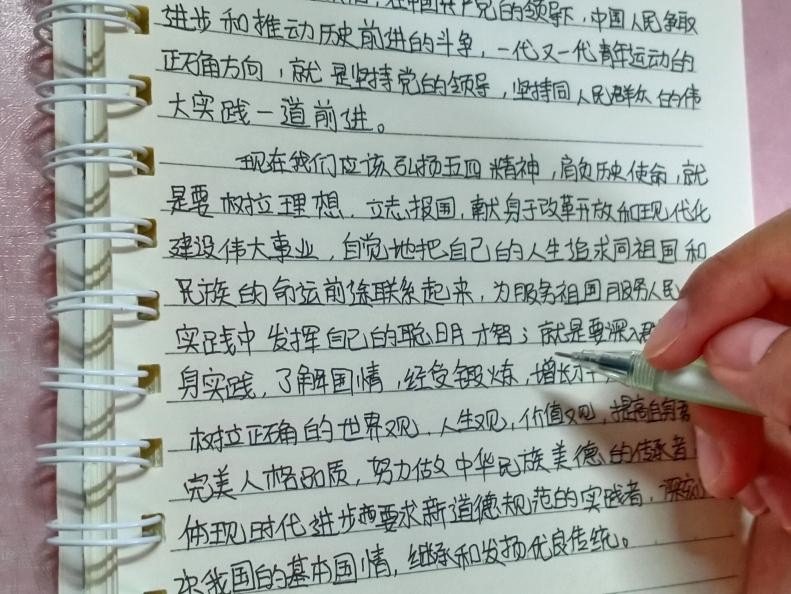 在中国共产党的领导下,中国人民争取
进步和推动历史前进的斗争,一代又一代青年运动的
正确方向,就是坚持党的领导,坚持同人民群众的伟
大实践一道前进。
现在我们应该弘扬五四精神,肩负历史使命,就
是要树立理想、立志报国,献身于改革开放和现代化
建设伟大事业,自觉地把自己的人生追求同祖国和
民族的命运前途联系起来,为服务祖国服务人民
实践中发挥自己的聪明才智;就是要深入
身实践,了解国情,经受锻炼,增长才
树立正确的世界观、人生观、价值观,提高自身
完美人格品质,努力做中华民族美德的传承者
体现时代进步要求新道德规范的实践者,深刻
我国的基本国情,继承和发扬优良传统。